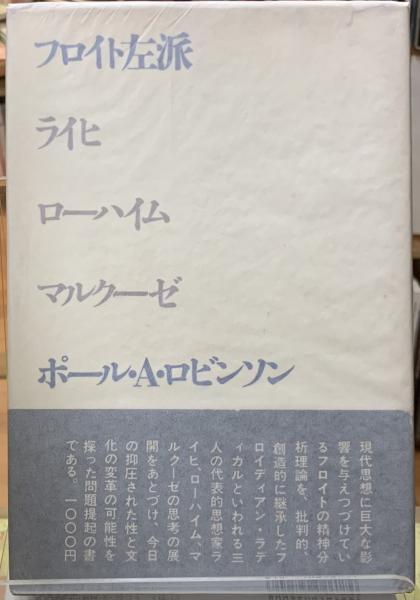 フロイト左派
ライヒ
ローハイム
マルクーゼ
ポール・A・ロビンソン
現代思想に巨大な影
響を与えつづけてい
るフロイトの精神分
析理論を、批判的、
創造的に継承したフ
ロイディアン・ラデ
ィカルといわれる三
人の代表的思想家ラ
イヒ、ローハイム、マ
ルクーゼの思考の展
開をあとづけ、今日
の抑圧された性と文
化の変革の可能性を
探った問題提起の書
である。一〇〇〇円